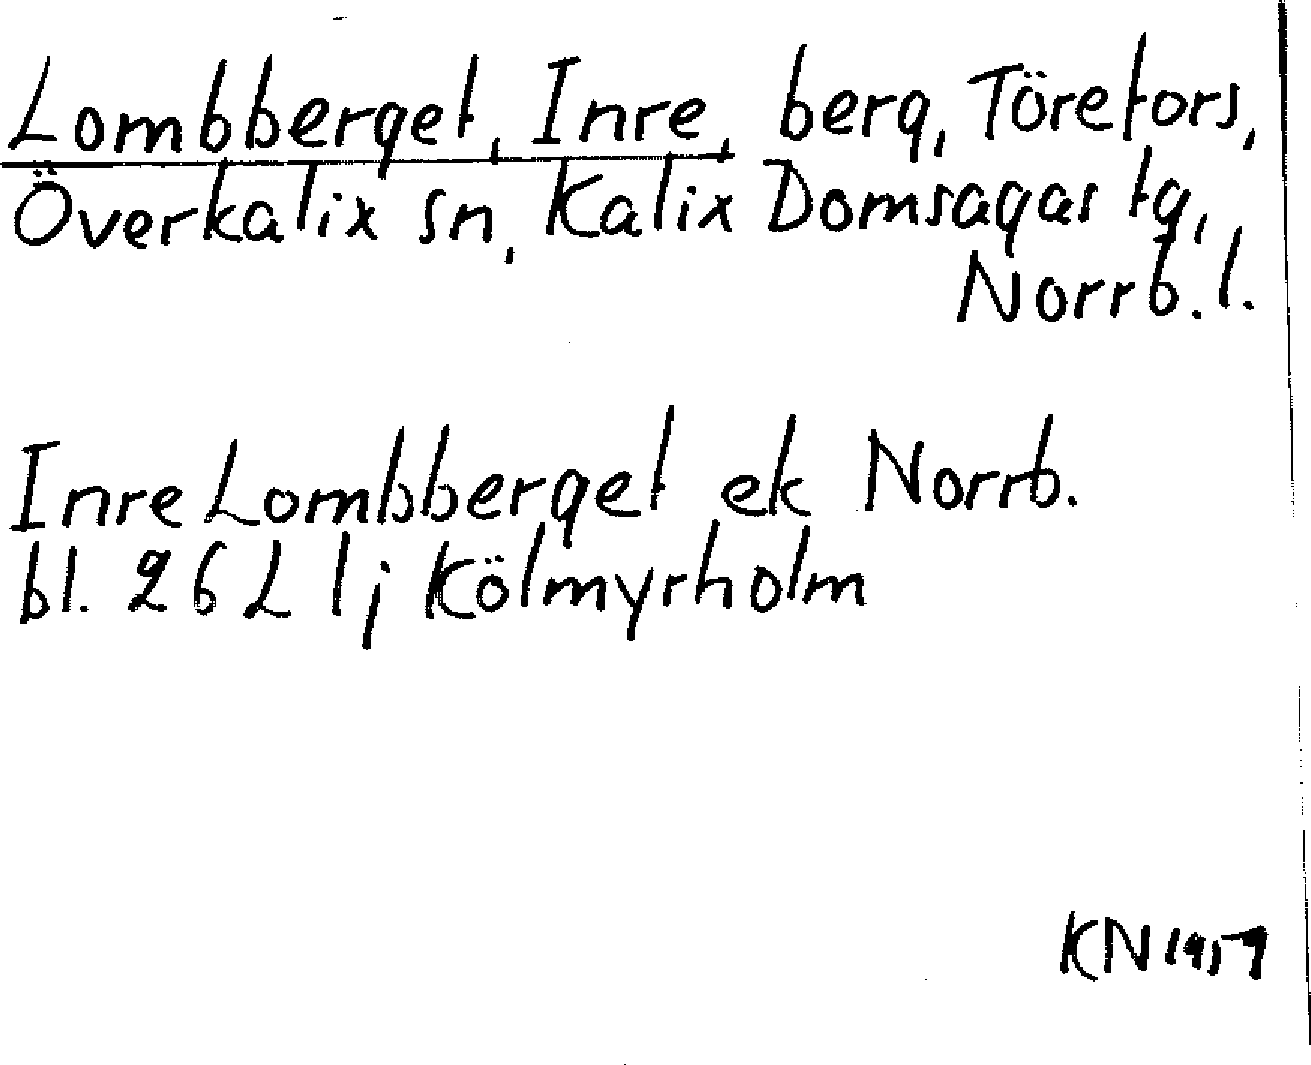 Lombberget, Inre, berg, Törefors,
Överkalix sn, Kalix Domsagas tg,
Norrb. l.
Inre Lombberget ek Norrb.
bl. 262 lj Kölmyrholm
KN 1957